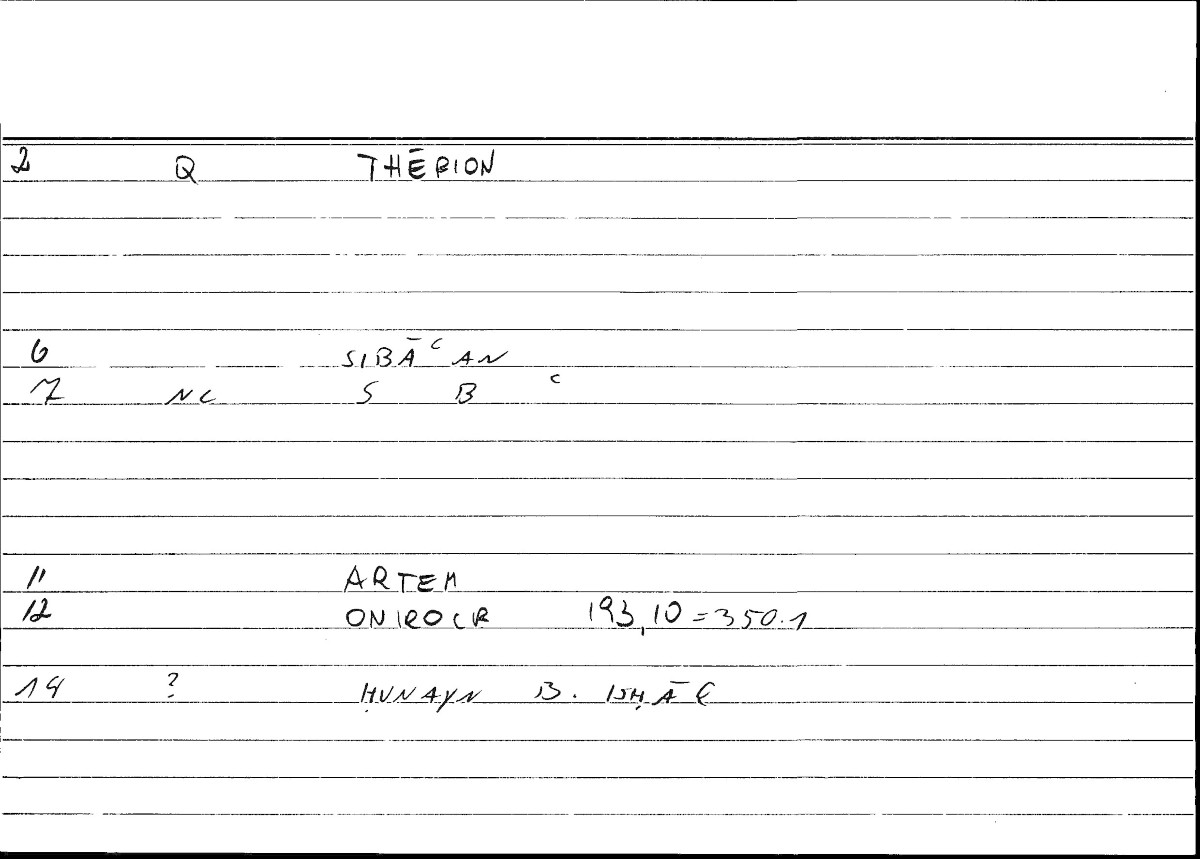 2 Q THĒRION
6 SIBĀʿAN
7 NC S B ʿ
11 ARTEM
12 ONIROCR 193,10=350.1
14 ? ḤUNAYN B. ISḤĀ